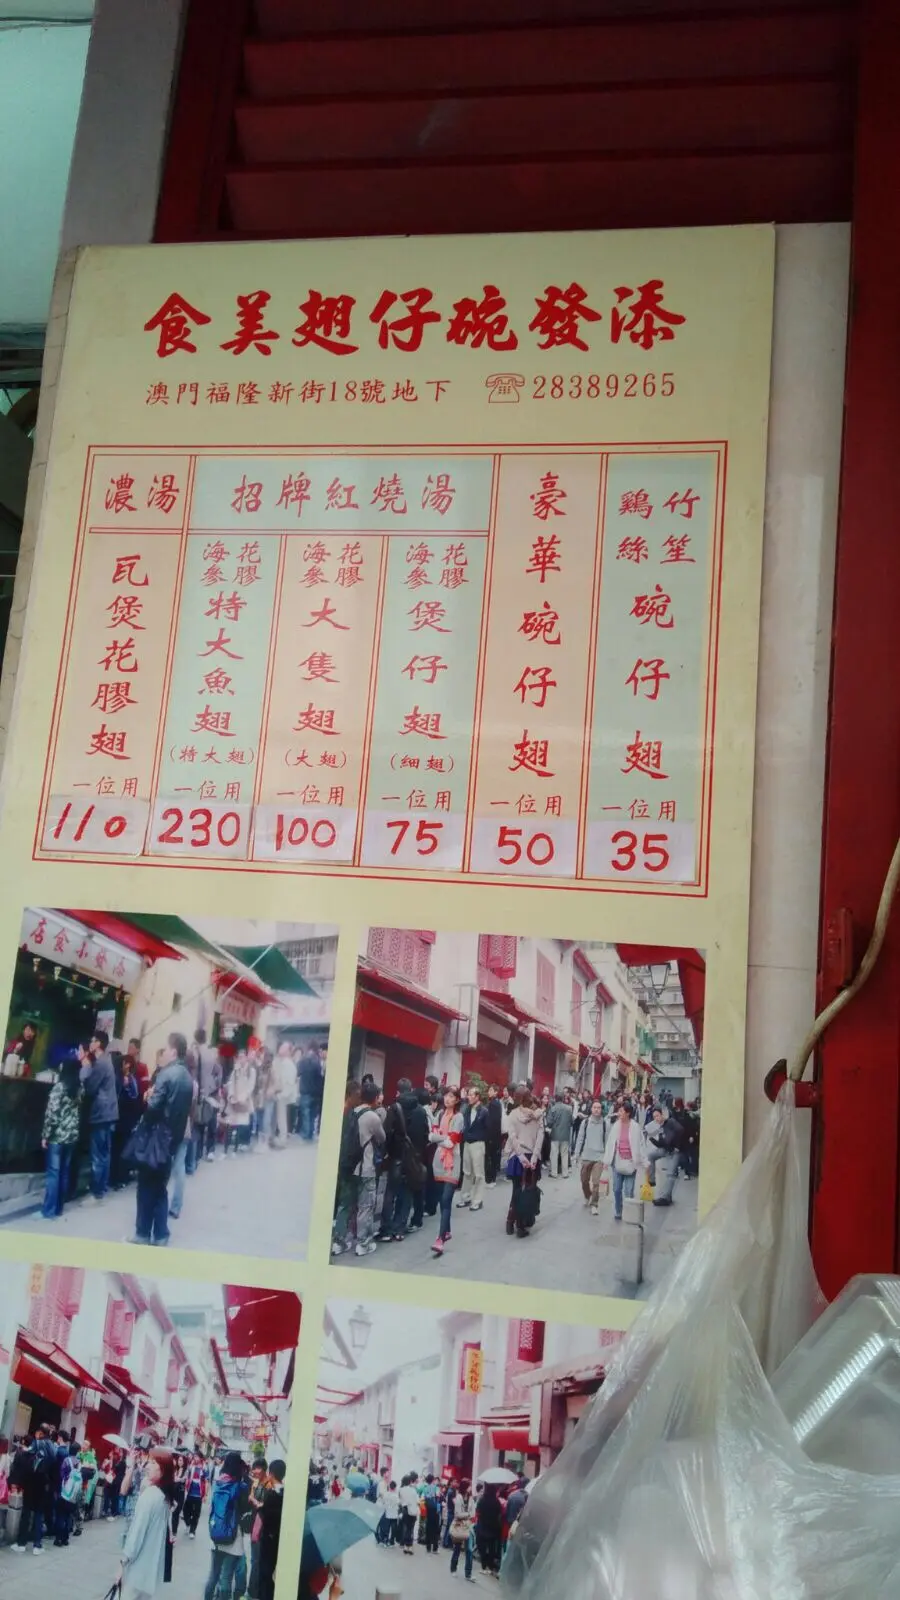 添發碗仔翅美食
澳門福隆新街18號地下 ☏28389265
竹笙
鷄絲
碗仔翅
一位用
35
豪華碗仔翅
一位用
50
招牌紅燒湯
花膠
海參
煲仔翅
(細翅)
一位用
75
花膠
海參
大隻翅
(大翅)
一位用
100
花膠
海參
特大魚翅
(特大翅)
一位用
230
濃湯
瓦煲花膠翅
一位用
110
添發小食店